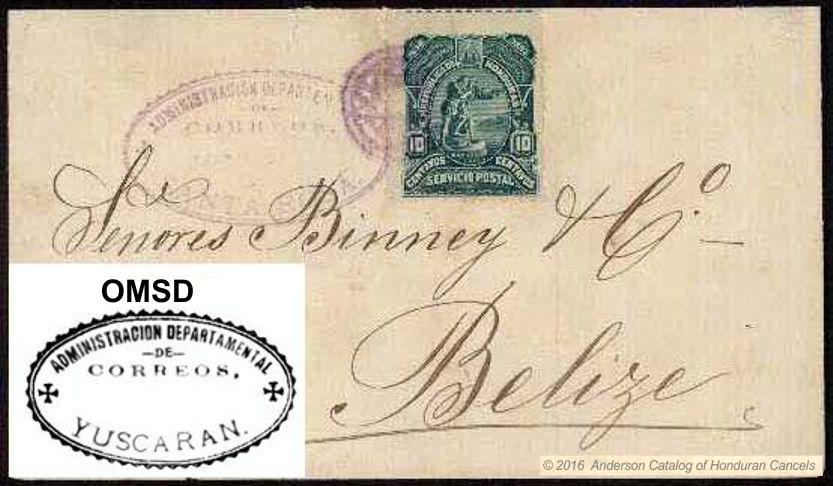 ADMINISTRACION DEPARTAMEN
DE
CORREOS.
REPUBLICA DE HONDURAS
10 10
CENTAVOS CENTAVOS
SERVICIO POSTAL
Señores Binney & Co.
Belize
OMSD
ADMINISTRACION DEPARTAMENTAL
-DE-
CORREOS.
YUSCARAN.
© 2016 Anderson Catalog of Honduran Cancels